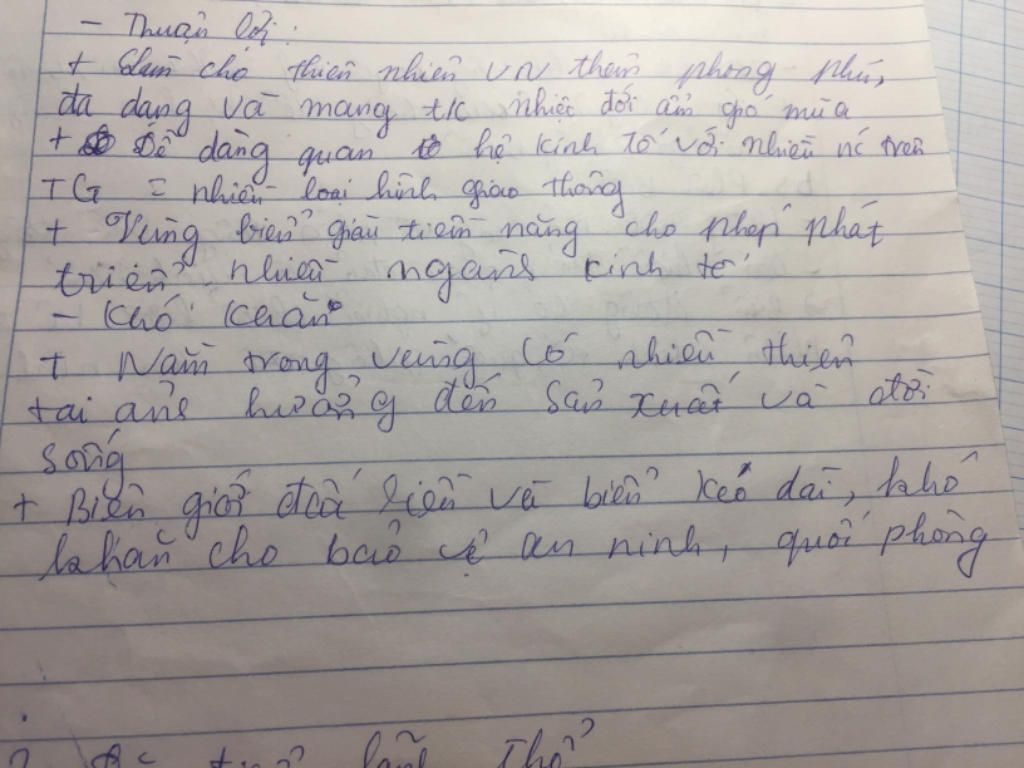 - Thuận lợi:
+ Làm cho thiên nhiên VN thêm phong phú,
đa dạng và mang t/c nhiệt đới ẩm gió mùa
+ Dễ dàng quan hệ kinh tế với nhiều nc trên
TG = nhiều loại hình giao thông
+ Vùng biển giàu tiềm năng cho phép phát
triển nhiều ngành kinh tế
- Khó khăn
+ Nằm trong vùng có nhiều thiên
tai ảnh hưởng đến sản xuất và đời
sống
+ Biên giới đất liền và biển kéo dài, khó
khăn cho bảo vệ an ninh, quốc phòng